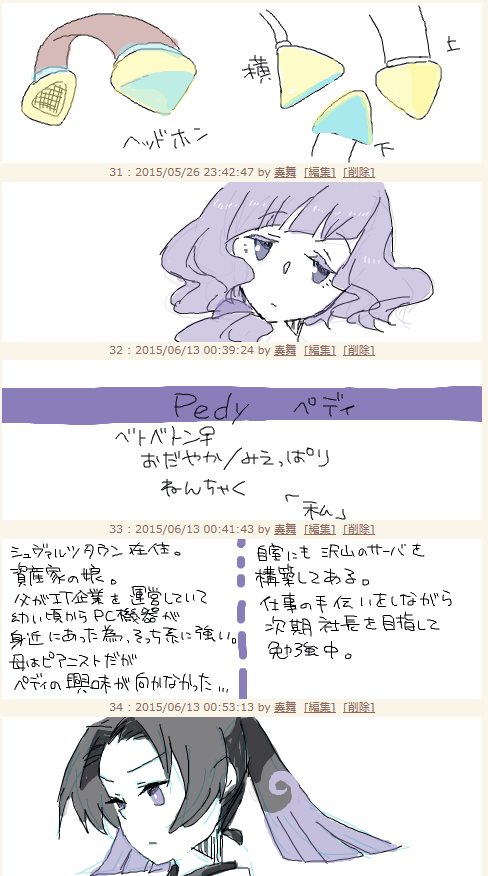 ヘッドホン
横
上
下
31 : 2015/05/26 23:42:47 by 奏舞 [編集] [削除]
32 : 2015/06/13 00:39:24 by 奏舞 [編集] [削除]
Pedy ペディ
ベトベトン♀
おだやか/みえっぱり
ねんちゃく
「私」
33 : 2015/06/13 00:41:43 by 奏舞 [編集] [削除]
シュヴァルツタウン在住。
資産家の娘。
父がIT企業を運営していて
幼い頃からPC機器が
身近にあった為、そっち系に強い。
母はピアニストだが
ペディの興味が向かなかった…
自室にも沢山のサーバを
構築してある。
仕事の手伝いをしながら
次期社長を目指して
勉強中。
34 : 2015/06/13 00:53:13 by 奏舞 [編集] [削除]